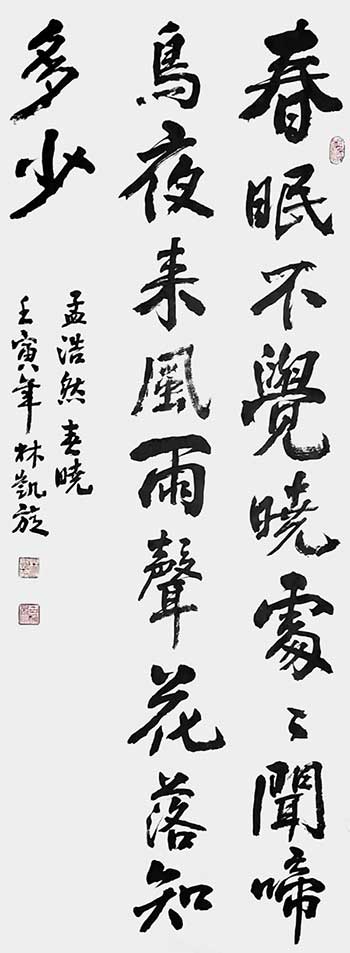 春眠不覺曉處〻聞啼
鳥夜来風雨聲花落知
多少
孟浩然春曉
壬寅年林凱旋